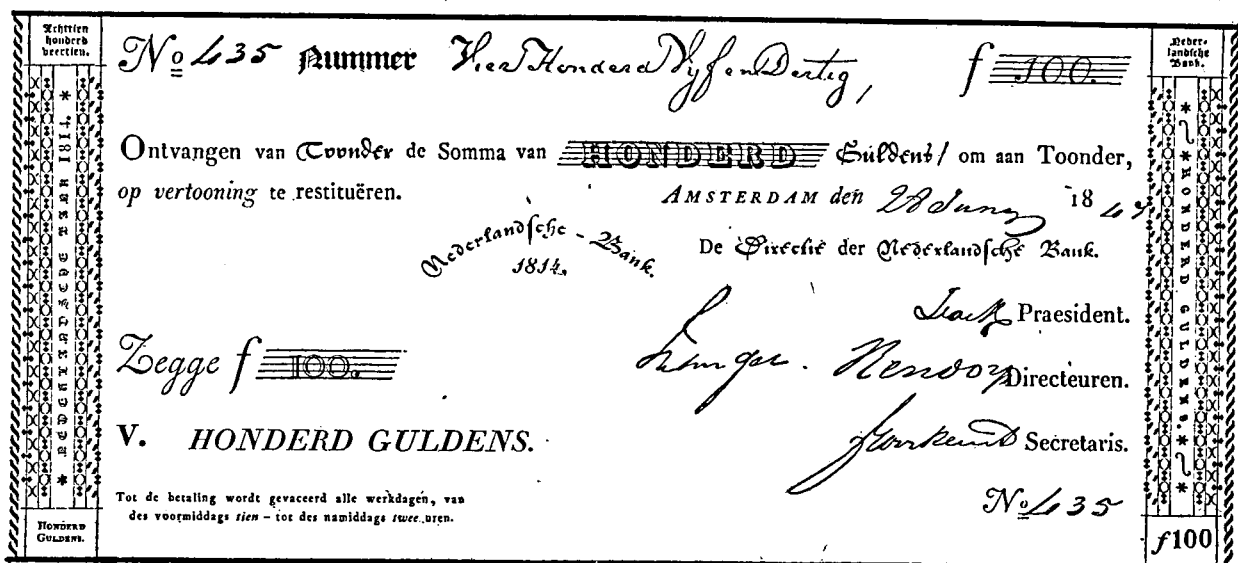 Achttien
honderd
veertien.
Neder-
landsche
Bank.
No 435 Nummer Vier Honderd Vyf en Dertig, f 100.
Ontvangen van Toonder de Somma van HONDERD Guldens / om aan Toonder,
op vertooning te restituëren. AMSTERDAM den 28 Juny 1847
Nederlandsche - Bank.
1814.
De Directie der Nederlandsche Bank.
Praesident.
Zegge f 100.
Directeuren.
V. HONDERD GULDENS.
Secretaris.
Tot de betaling wordt gevaceerd alle werkdagen, van
des voormiddags tien – tot des namiddags twee uren.
No 435
HONDERD
GULDENS.
f100
NEDERLANDSCHE BANK 1814.
HONDERD GULDENS.